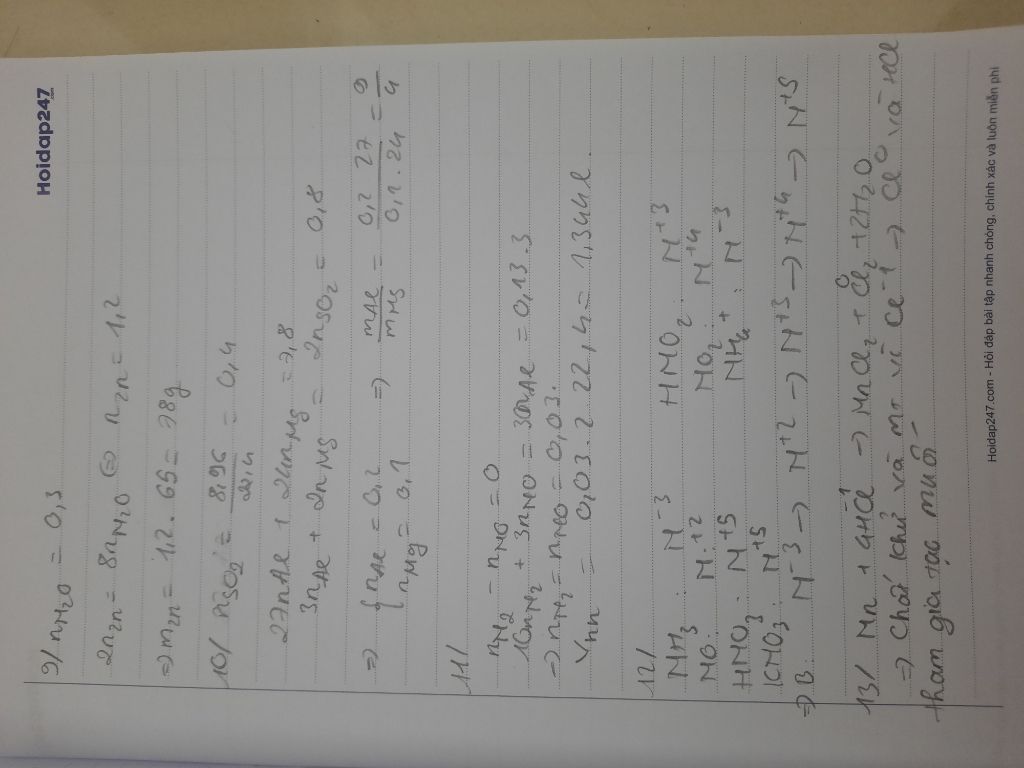 Hoidap247
9/ nN2O = 0,3
2nZn = 8nN2O ⇔ nZn = 1,2
⇒ mZn = 1,2 . 65 = 78g
10/ nSO2 = 8,96/22,4 = 0,4
27nAl + 24nMg = 7,8
3nAl + 2nMg = 2nSO2 = 0,8
⇒ { nAl = 0,2 ⇒ mAl/mMg = 0,2 . 27/0,1 . 24 = 9/4
nMg = 0,1
11/
nN2 - nNO = 0
10nN2 + 3nNO = 3nAl = 0,13 . 3
⇒ nN2 = nNO = 0,03.
Vhh = 0,03 . 2 . 22,4 = 1,344l.
12/
NH3 : N-3 HNO2 : N+3
NO : N+2 NO2 : N+4
HNO3 : N+5 NH4+ : N-3
KNO3 : N+5
⇒ B. N-3 → N+2 → N+3 → N+4 → N+5
13/ Mn + 4HCl-1 → MnCl2 + Cl02 + 2H2O
⇒ Chất khử và mt vì Cl-1 → Cl0 và HCl
tham gia tạo muối
Hoidap247.com - Hỏi đáp bài tập nhanh chóng, chính xác và luôn miễn phí